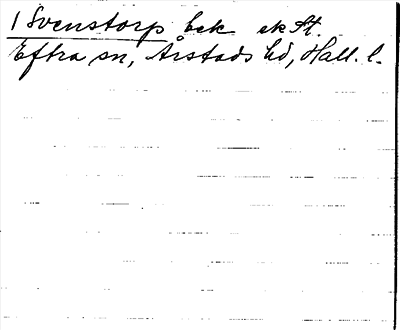 1 Svenstorp bek ek St.
Eftra sn, Årstads hd, Hall. l.